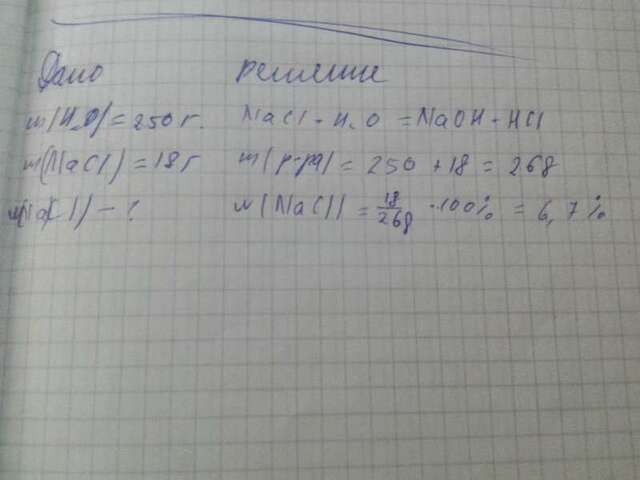 Дано
Решение
m(H₂O) = 250 г. NaCl + H₂O = NaOH + HCl
m(NaCl) = 18 г m(р-ра) = 250 + 18 = 268
w(NaCl) - ? w(NaCl) = 18/268 · 100% = 6,7%